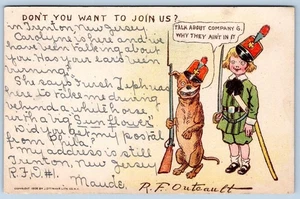 DON'T YOU WANT TO JOIN US?
TALK ABOUT COMPANY G.
WHY THEY AIN'T IN IT
Trenton, New Jersey
Caroline is here and i've
been talking about
you. Has your ears been
burning?
She says,
her to take me driving
behind a white horse
or thang "Sun flower"
Did you get my postal
from Phila?
my address is still
Trenton, New Jersey
R.F.D.#1. Maude.
R.F. Outcault